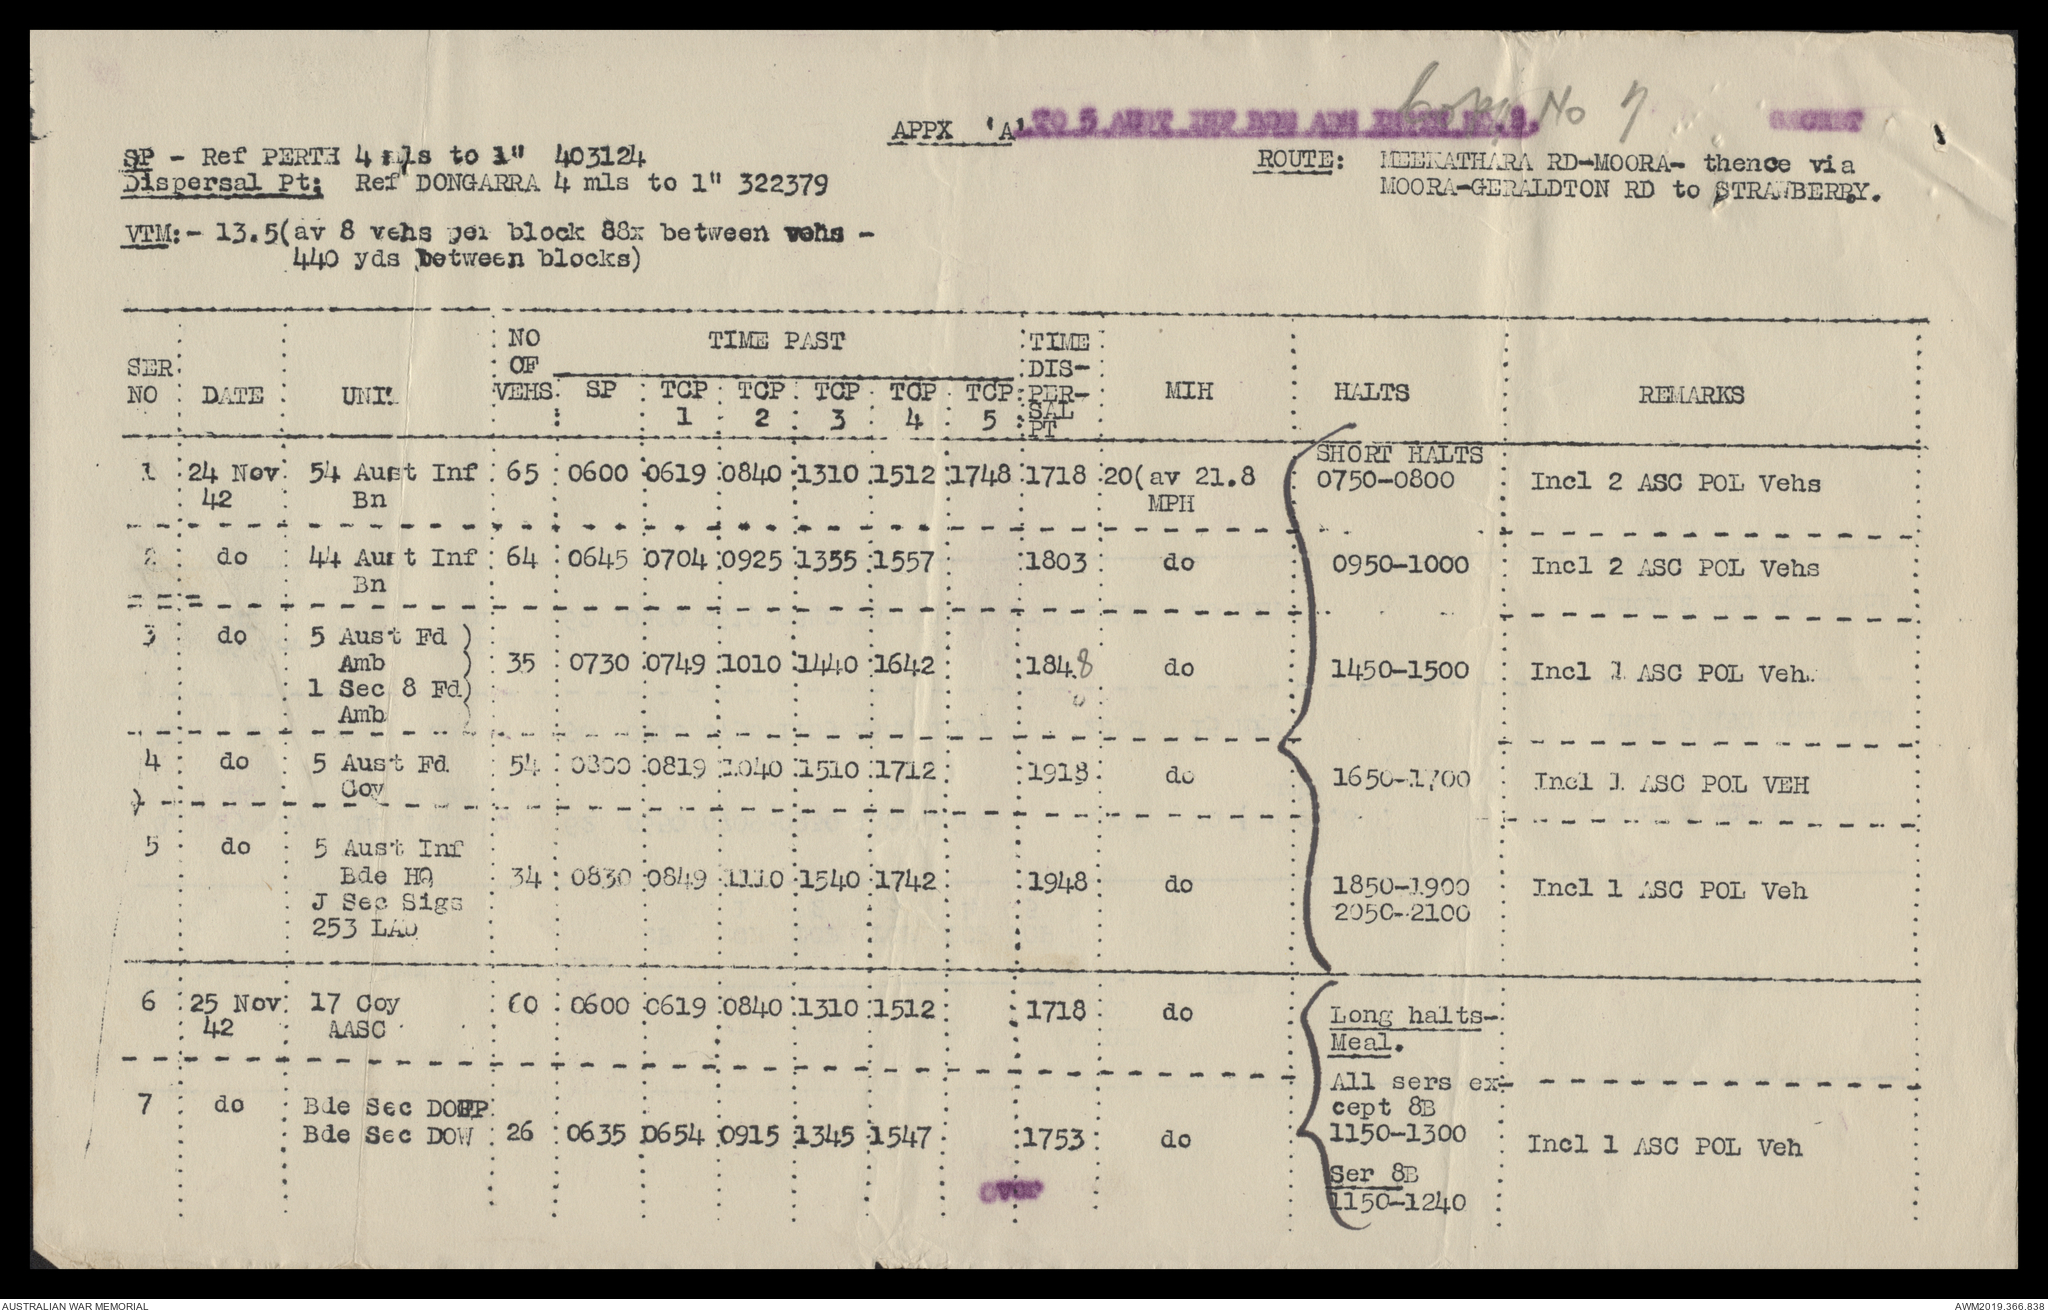 Copy No 7
APPX 'A' TO 5 AUST INF BDE ADM INSTN NO.8. SECRET
SP - Ref PERTH 4 mls to 1" 403124
Dispersal Pt: Ref DONGARRA 4 mls to 1" 322379
ROUTE: MEEKATHARA RD-MOORA- thence via
MOORA-GERALDTON RD to STRAWBERRY.
VTM:- 13.5(av 8 vehs per block 88x between vehs -
440 yds between blocks)
SER NO : DATE : UNIT : NO OF VEHS : TIME PAST : TIME DIS-PER-SAL PT : MIH : HALTS : REMARKS
SP : TCP 1 : TCP 2 : TCP 3 : TCP 4 : TCP 5
SHORT HALTS
1 : 24 Nov : 54 Aust Inf : 65 : 0600 : 0619 : 0840 : 1310 : 1512 : 1748 : 1718 : 20(av 21.8 : 0750-0800 : Incl 2 ASC POL Vehs
42 : Bn : MPH
2 : do : 44 Aust Inf : 64 : 0645 : 0704 : 0925 : 1355 : 1557 : 1803 : do : 0950-1000 : Incl 2 ASC POL Vehs
Bn
3 : do : 5 Aust Fd )
Amb ) : 35 : 0730 : 0749 : 1010 : 1440 : 1642 : 1848 : do : 1450-1500 : Incl 1 ASC POL Veh.
1 Sec 8 Fd)
Amb )
4 : do : 5 Aust Fd : 54 : 0800 : 0819 : 1040 : 1510 : 1712 : 1918 : do : 1650-1700 : Incl 1 ASC POL VEH
Coy
5 : do : 5 Aust Inf
Bde HQ : 34 : 0830 : 0849 : 1110 : 1540 : 1742 : 1948 : do : 1850-1900 : Incl 1 ASC POL Veh
J Sec Sigs : 2050-2100
253 LAD
6 : 25 Nov : 17 Coy : 60 : 0600 : 0619 : 0840 : 1310 : 1512 : 1718 : do : Long halts-
42 : AASC : Meal.
All sers ex-
7 : do : Bde Sec DOEP : cept 8B
Bde Sec DOW : 26 : 0635 : 0654 : 0915 : 1345 : 1547 : 1753 : do : 1150-1300 : Incl 1 ASC POL Veh
Ser 8B
over
1150-1240
AUSTRALIAN WAR MEMORIAL
AWM2019.366.838